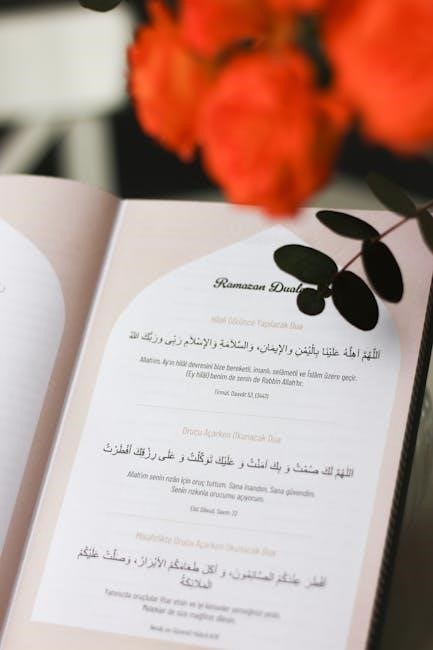 Ramazan
Hilali Görünce Yapılacak Dua
اَللّٰهُمَّ اَهِلَّهُ عَلَيْنَا بِالْيُمْنِ وَالْإِيمَانِ، وَالسَّلَامَةِ وَالْإِسْلَامِ رَبِّى وَرَبُّكَ اللهُ
Allah'ım, Ay'ın hilâl devresini bize bereketli, imanlı, selâmetli ve İslâm üzere geçir.
(Ey hilâl) benim de senin de Rabbin Allah'tır.
Tirmizî, Daavât 52, (3447)
Orucu Açarken Okunacak Dua
اَللّٰهُمَّ لَكَ صُمْتُ وَ بِكَ اٰمَنْتُ وَ عَلَيْكَ تَوَكَّلْتُ وَ عَلَى رِزْقِكَ أَفْطَرْتُ
Allah'ım senin rızân için oruç tuttum. Sana inandım. Sana güvendim.
Senin rızkınla orucumu açıyorum.
Ebû Dâvud, Savm: 22
Misafirlikte Orucu Açarken Okunacak Dua
أَفْطَرَ عِنْدَكُمُ الصَّائِمُونَ، وَ أَكَلَ طَعَامَكُمُ الْأَبْرَارُ، وَصَلَّتْ عَلَيْكُمُ
الْمَلَائِكَةُ
Yanınızda oruçlular iftar etsin ve iyi kimseler yemeğinizi yesin.
Melekler de size mağfiret dilesin.